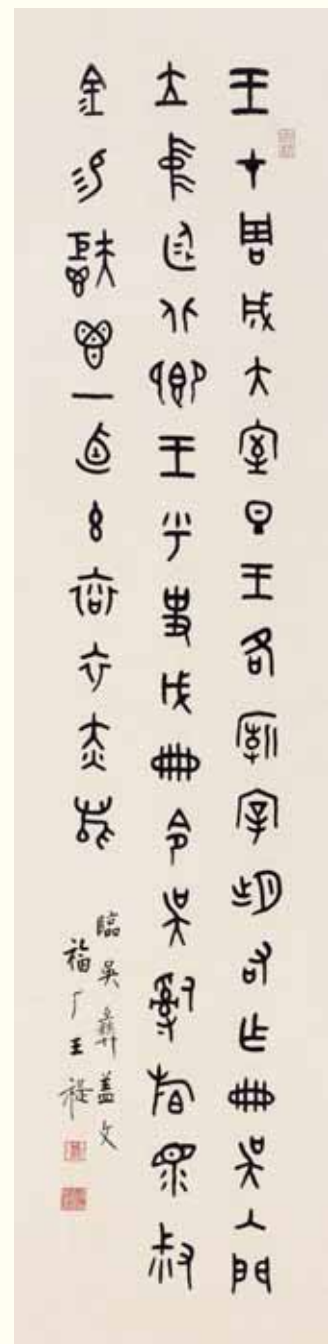 王才周成大室旦王各廟宰朏右乍冊吳入門
立中廷北卿王乎史戊冊令吳𤔲旃眔叔
金易秬鬯一卣玄袞衣赤舄
臨吳彝蓋文
福厂王禔